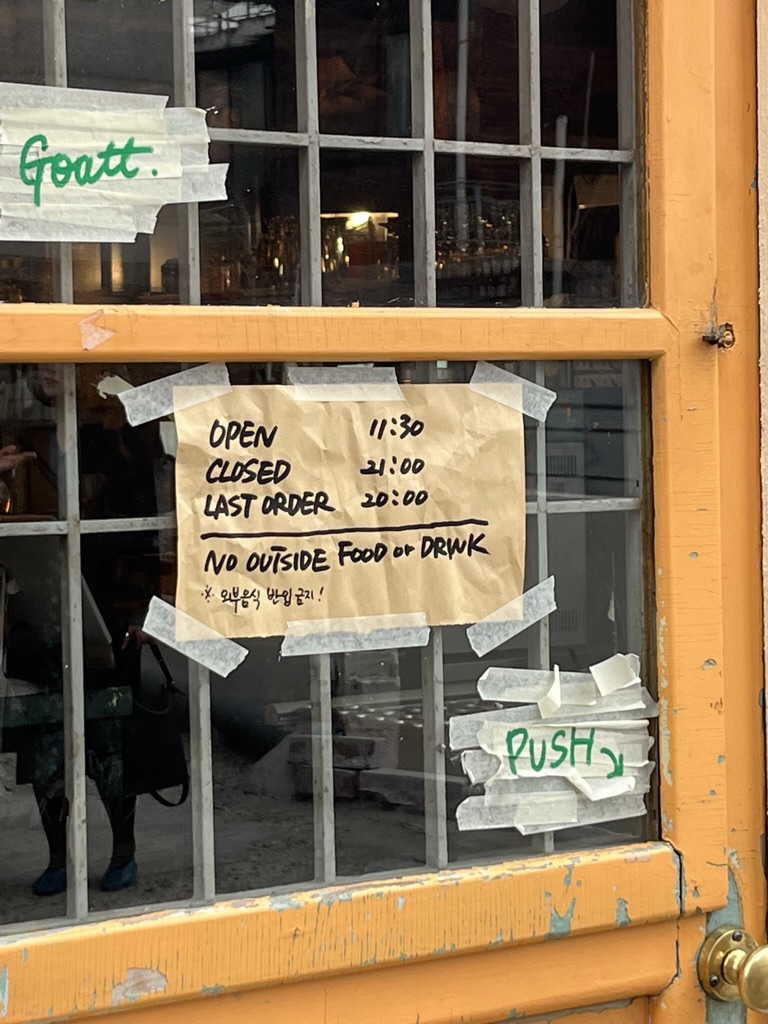 Goatt.
OPEN 11:30
CLOSED 21:00
LAST ORDER 20:00
NO OUTSIDE FOOD or DRINK
※ 외부음식 반입금지!
PUSH↘